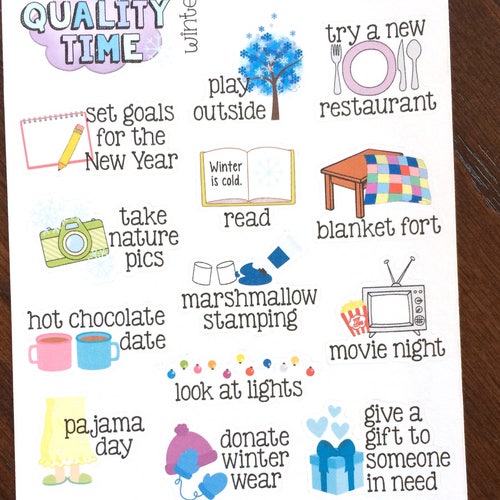 QUALITY
TIME
winte
play
outside
try a new
restaurant
set goals
for the
New Year
Winter
is cold.
read
blanket fort
take
nature
pics
marshmallow
stamping
hot chocolate
date
movie night
look at lights
pajama
day
donate
winter
wear
give a
gift to
someone
in need